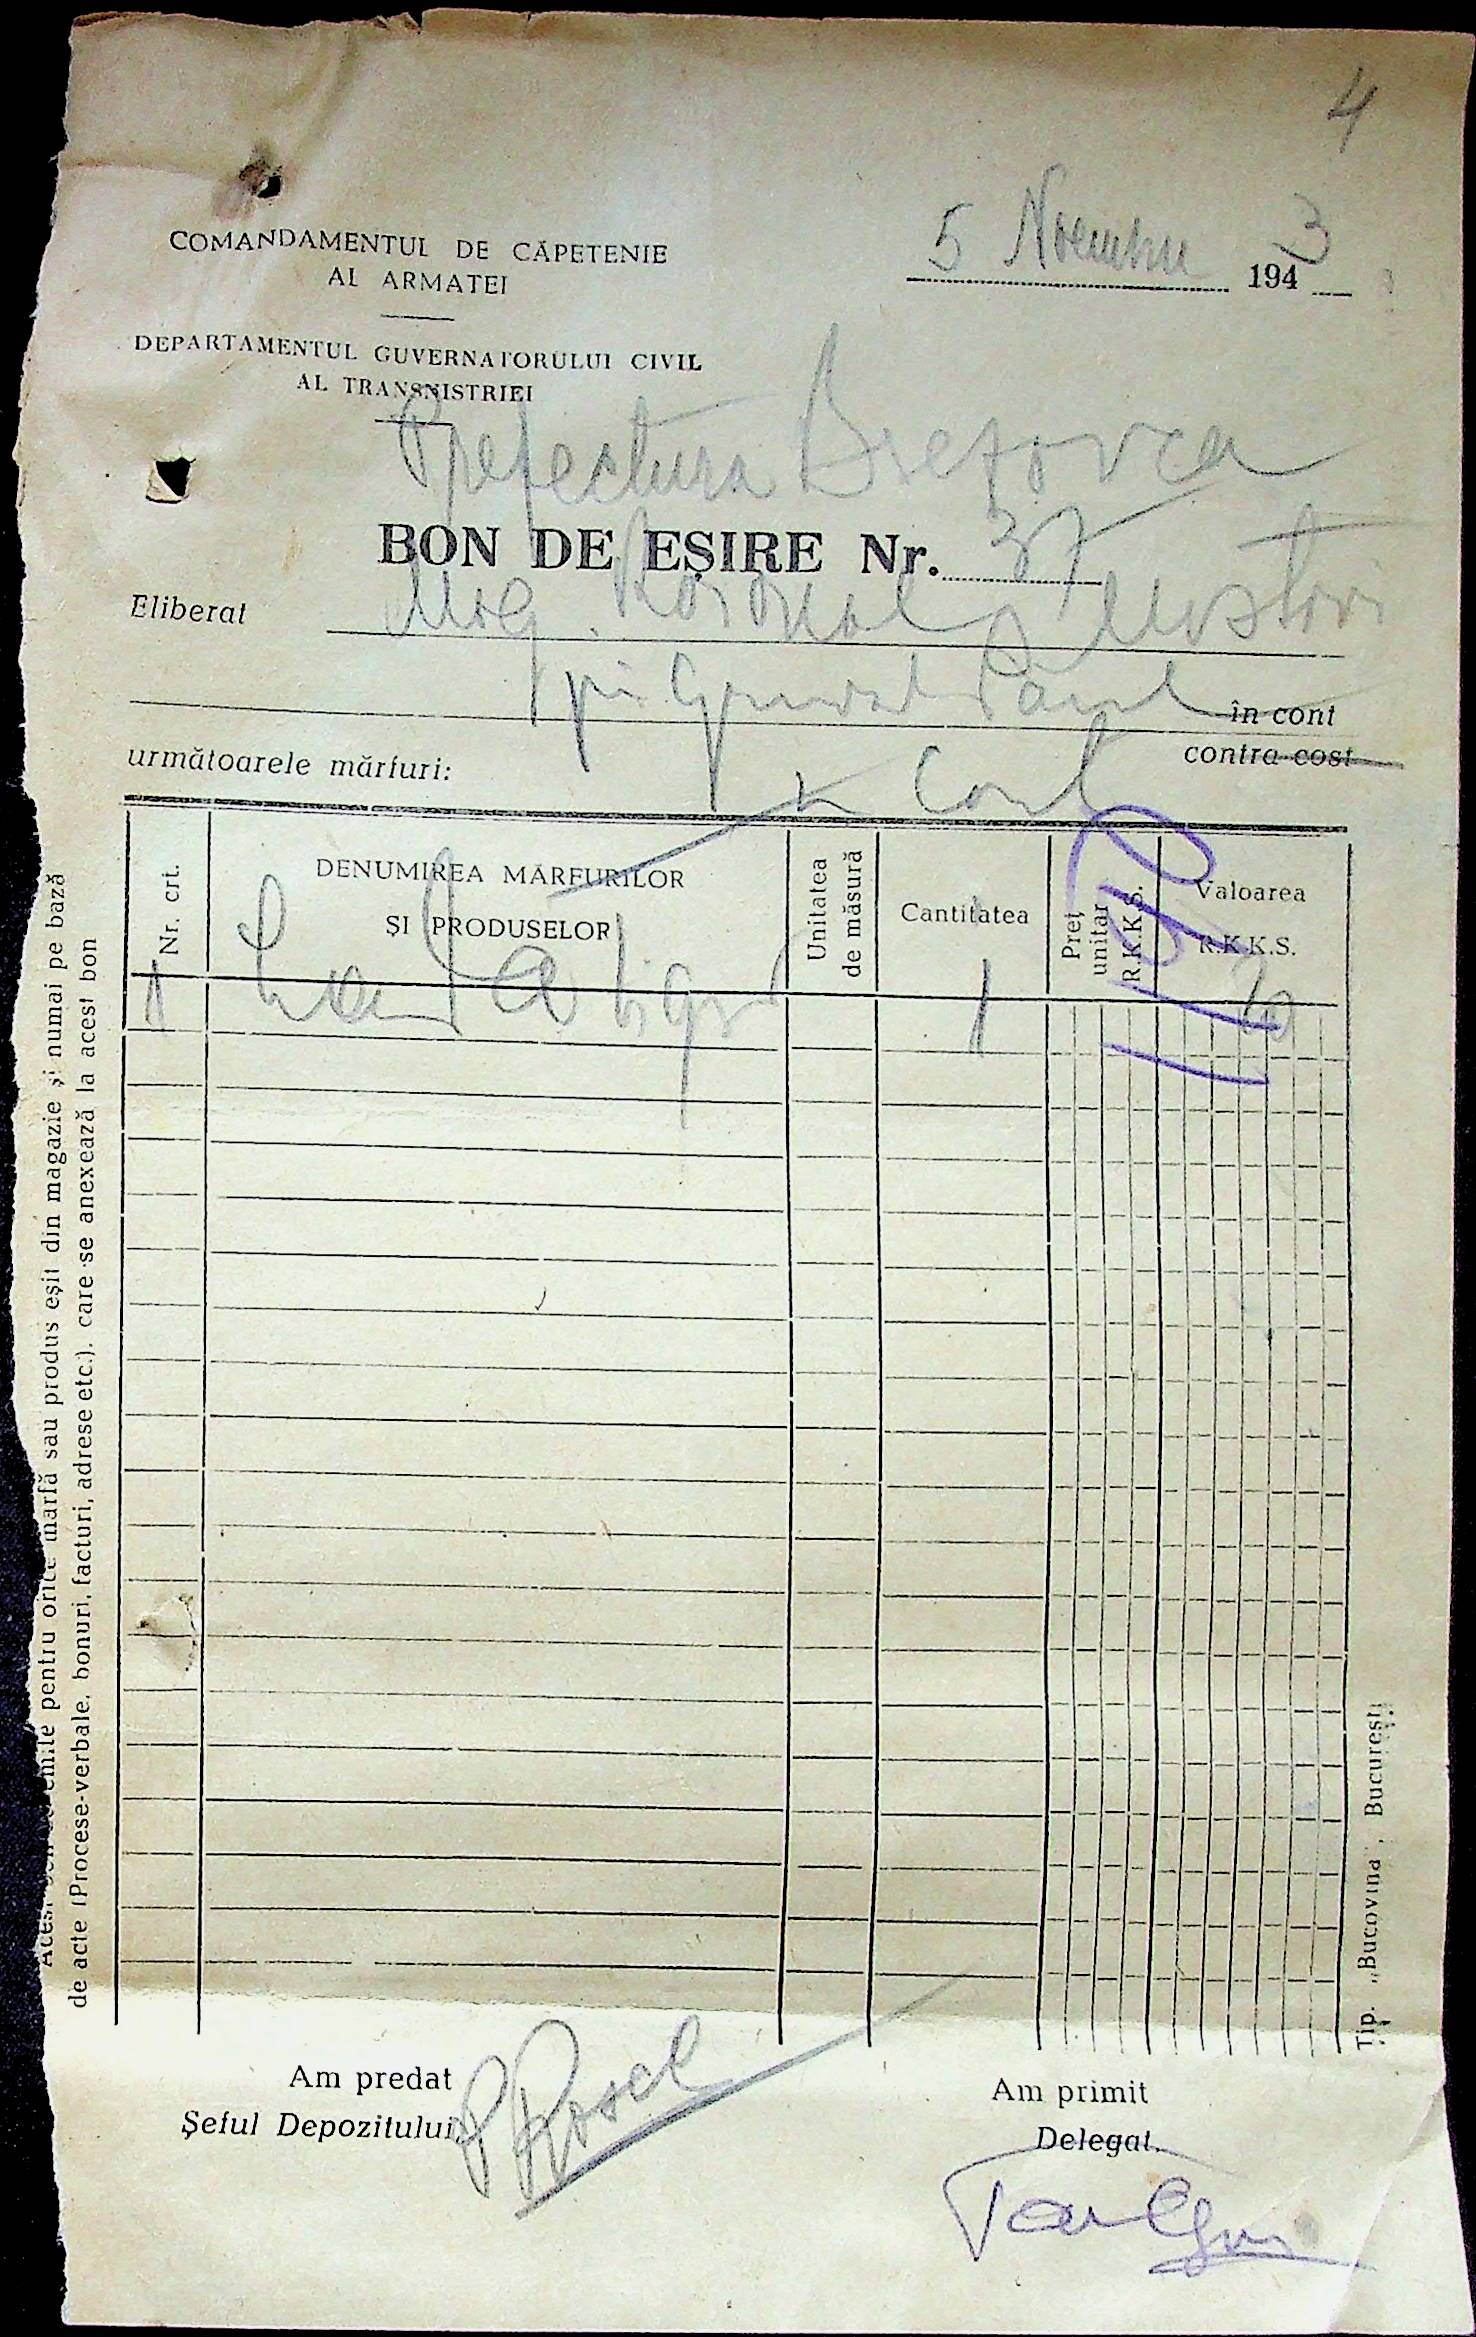 4
5 Noembrie 1943
COMANDAMENTUL DE CĂPETENIE
AL ARMATEI
DEPARTAMENTUL GUVERNATORULUI CIVIL
AL TRANSNISTRIEI
Prefectura Brezovca
BON DE EȘIRE Nr. 37
Eliberat Mag. Raional Mostovi
în cont
contra cost
următoarele mărfuri:
in Cont
Nr. crt.
DENUMIREA MĂRFURILOR
ȘI PRODUSELOR
Unitatea
de măsură
Cantitatea
Preț
unitar
R.K.K.S.
Valoarea
R.K.K.S.
1
1
de acte (Procese-verbale, bonuri, facturi, adrese etc.). care se anexează la acest bon
pentru orice marfă sau produs eșit din magazie și numai pe bază
Tip. „Bucovina", București
Am predat
Șeful Depozitului,
Am primit
Delegat,